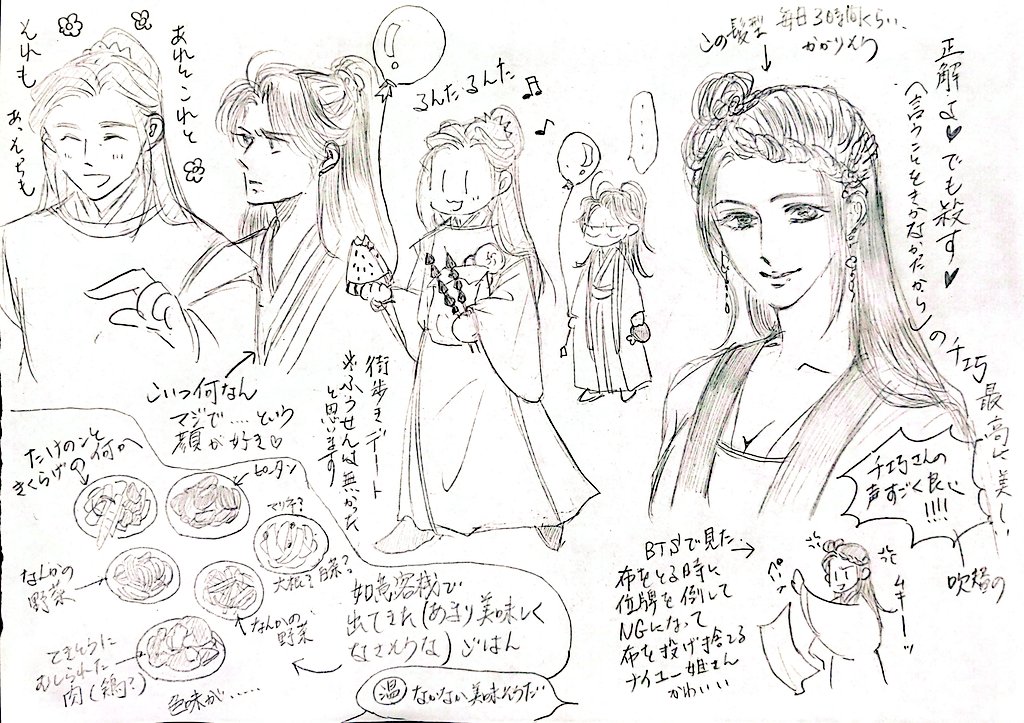 それも
あっちも
あれとこれと
るんた・るんた
……
この髪型 毎日3時間くらい
かかりそう
正解よ♥でも殺す♥
(言うことをきかなかったから)の
チ巧
最高に美しい
こいつ何なん
マジで……という
顔が好き♡
街歩きデート
※ふうせんは無かった
と思います
たけのこと
きくらげの何か
ピータン
なんかの
野菜
大根?白菜?
なんかの
野菜
てきとうに
むしられた
肉(鶏?)
色味が……
如意客桟で
出てきた(あまり美味しく
なさそうな)ごはん
温 なかなか美味そうだ
チ巧さんの
声すごく良い
!!!!
吹替の
BTSで見た
布をとる時に
位牌を倒して
NGになって
布を投げ捨てる
ナイエー姐さん
かわいい
ペいっ
ムキーッ